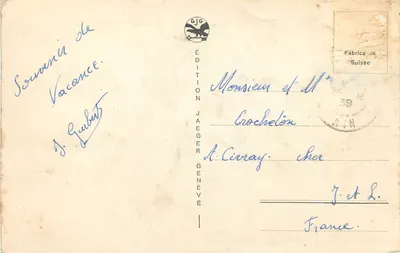 Souvenir de
Vacance.
J. Guibert
GJG
EDITION JAEGER GENÈVE
Fabriqué en
Suisse
39
AIN
Monsieur et Mme
Crochetón
A. Civray. Cher
J. A. L.
France.